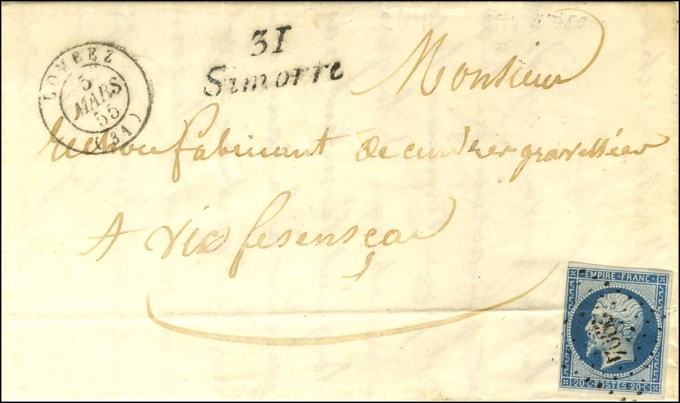 LOMBEZ
5
MARS
55
(31)
31
Simorre
Monsieur
fabricant de cendres gravellées
A vic fesensac
EMPIRE-FRANC.
20 C POSTES 20 C